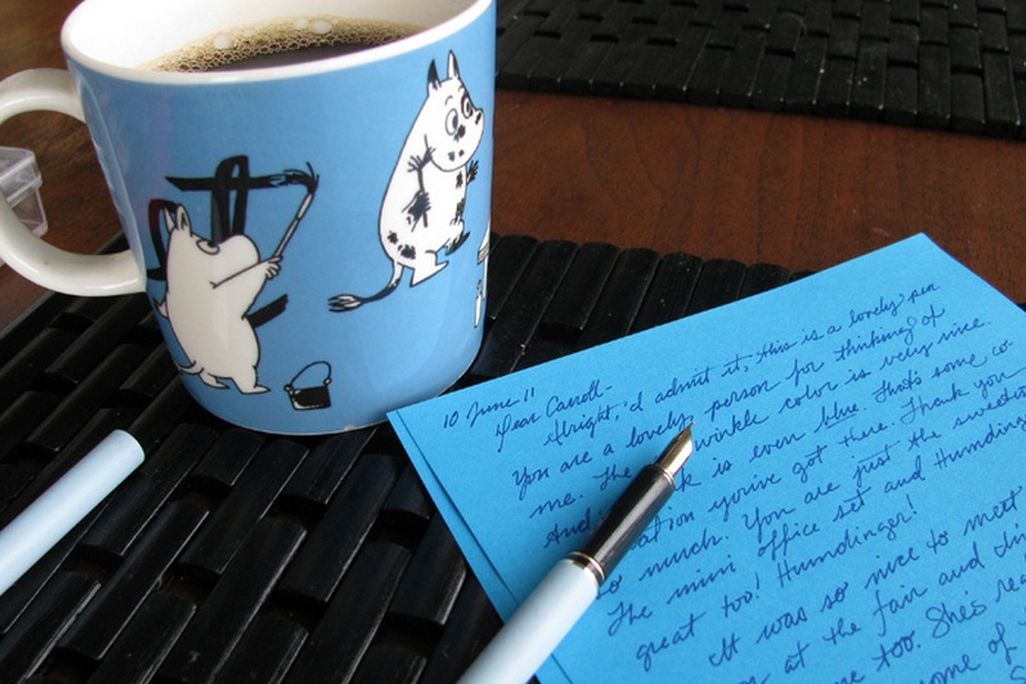 10 June 11
Dear Carroll-
Alright, I'd admit it, this is a lovely pen.
You are a lovely person for thinking of
me. The winkle color is very nice.
And is even blue. That's some co-
ation you've got there. Thank you
so much. You are just the sweetest
The mini office set and Humding
great too! Humdinger!
It was so nice to meet
at the fair and
me too. She's rea
some of